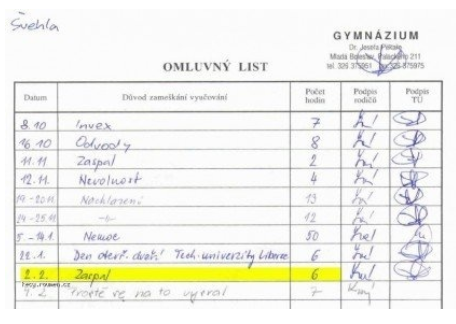 Švehla
GYMNÁZIUM
Dr. Josefa Pekaře
Mladá Boleslav, Palackého 211
tel. 326 375951 326 375975
OMLUVNÝ LIST
Datum Důvod zameškání vyučování Počet hodin Podpis rodičů Podpis TÚ
8.10 Invex 7
16.10 Odvody 8
11.11 Zaspal 2
12.11. Nevolnost 4
19-20.11. Nachlazení 13
24-25.11 -"- 12
5.-14.1. Nemoc 50
22.1. Den otevř. dveří Tech. univerzity Liberec 6
2.2. Zaspal 6
7.2 Prostě se na to vysral 7
fecy.roumen.cz